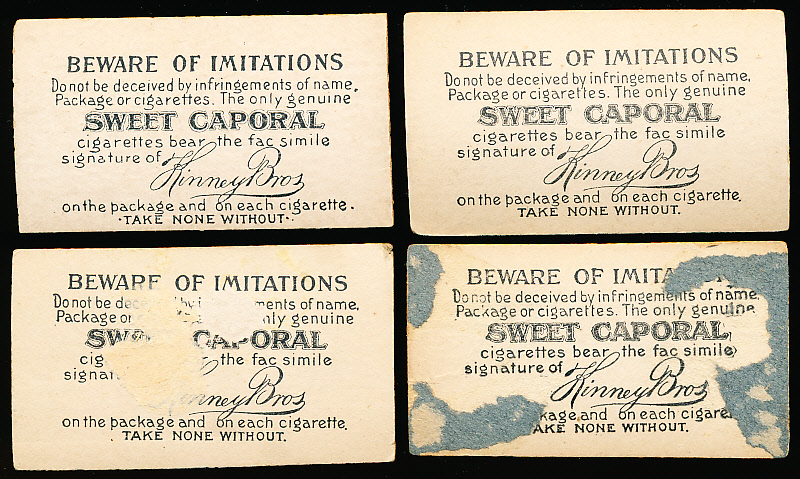 BEWARE OF IMITATIONS
Do not be deceived by infringements of name.
Package or cigarettes. The only genuine
SWEET CAPORAL
cigarettes bear the fac simile
signature of Kinney Bros
on the package and on each cigarette.
·TAKE NONE WITHOUT·
BEWARE OF IMITATIONS
Do not be deceived by infringements of name.
Package or cigarettes. The only genuine
SWEET CAPORAL
cigarettes bear the fac simile
signature of Kinney Bros
on the package and on each cigarette.
TAKE NONE WITHOUT.
BEWARE OF IMITATIONS
Do not be dec by in ements of name.
Package or nly genuine
SWE CAPORAL
cig the fac simile
signat nney Bros
on the package and on each cigarette.
TAKE NONE WITHOUT.
BEWARE OF IMITA
Do not be deceived by infringements of name
Package or cigarettes. The only genuine
SWEET CAPORAL
cigarettes bear the fac simile
signature of Kinney Bros
kage and on each cigare
AKE NONE WITHOUT.